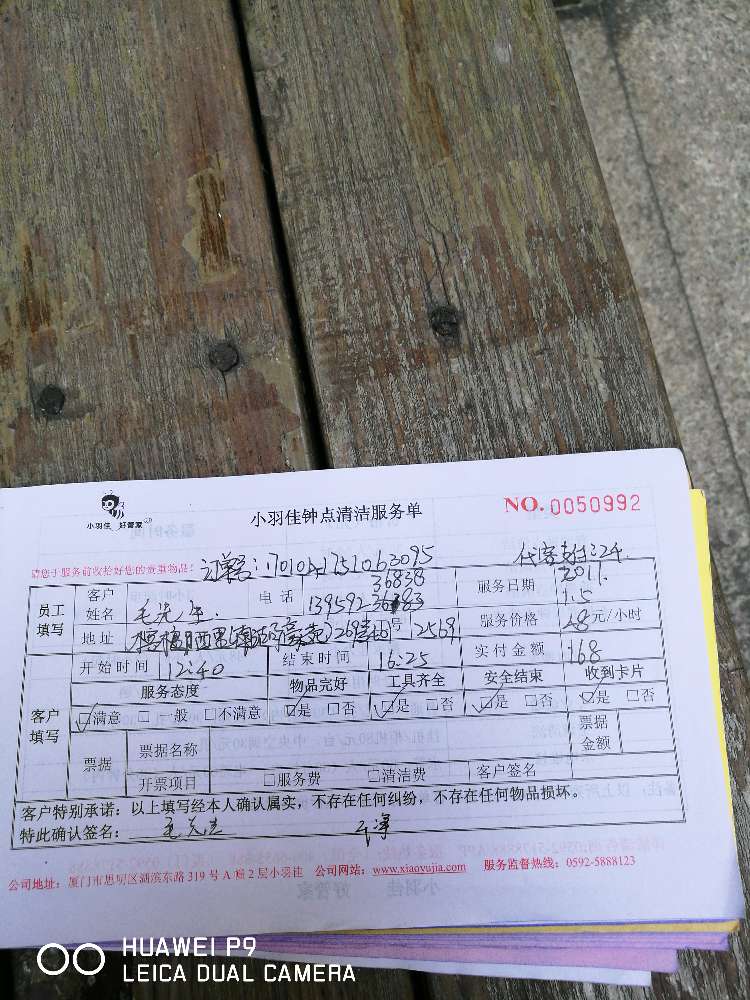 小羽佳 好管家
小羽佳钟点清洁服务单
NO. 0050992
请您于服务前收拾好您的贵重物品!
代客支付:24.
员工填写 客户姓名 毛先生. 电话 36838 服务日期 2017. 1.5
地址 号 2569 服务价格 48元/小时
开始时间 12:40 结束时间 16:25 实付金额 168
客户填写 服务态度 物品完好 工具齐全 安全结束 收到卡片
☑满意 □一般 □不满意 ☑是 □否 ☑是 □否 ☑是 □否 ☑是 □否
票据 票据名称 票据金额
开票项目 □服务费 □清洁费 客户签名
客户特别承诺:以上填写经本人确认属实,不存在任何纠纷,不存在任何物品损坏。
特此确认签名: 毛先生
公司地址:厦门市思明区湖滨东路319号A幢2层小羽佳 公司网站:www.xiaoyujia.com 服务监督热线:0592-5888123
HUAWEI P9
LEICA DUAL CAMERA